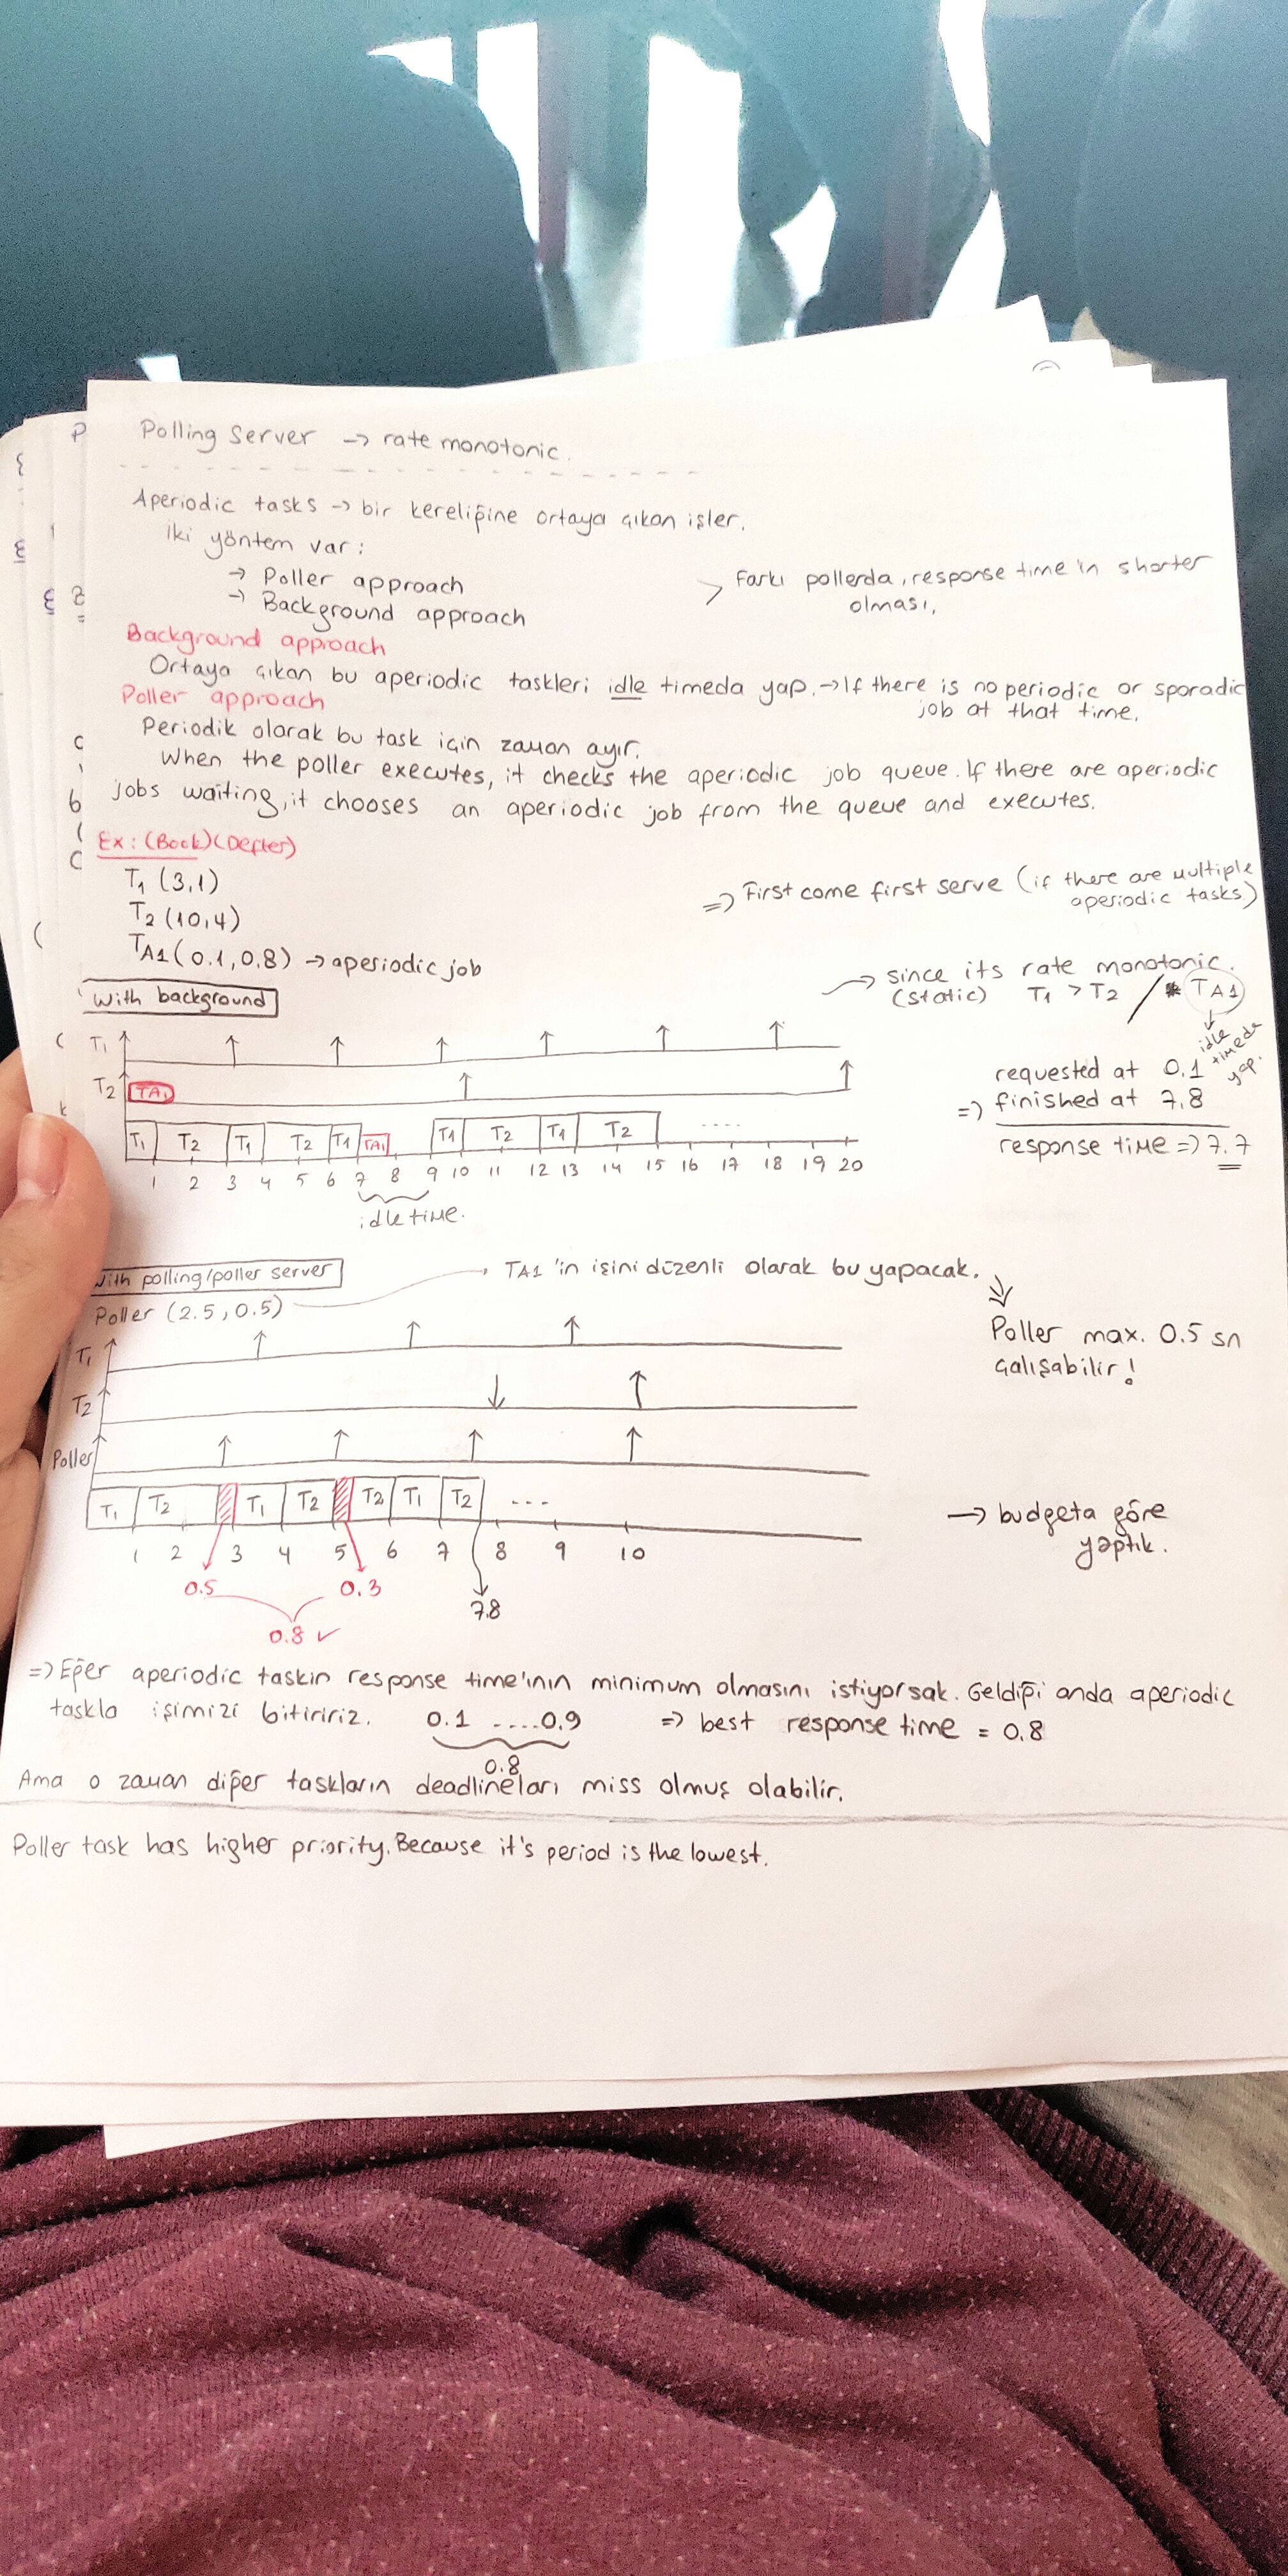 Polling Server -> rate monotonic.
Aperiodic tasks -> bir kereliğine ortaya çıkan işler.
İki yöntem var:
-> Poller approach
-> Background approach
> Farkı pollerda, response time'ın shorter
olması.
Background approach
Ortaya çıkan bu aperiodic taskleri idle timeda yap. -> If there is no periodic or sporadic
job at that time.
Poller approach
Periodik olarak bu task için zaman ayır.
When the poller executes, it checks the aperiodic job queue. If there are aperiodic
jobs waiting, it chooses an aperiodic job from the queue and executes.
Ex: (Book)(Defter)
T1 (3,1)
T2 (10,4)
TA1 (0.1, 0.8) -> aperiodic job
=> First come first serve (if there are multiple
aperiodic tasks)
With background
-> since its rate monotonic.
(static) T1 > T2 / TA1
idle
timeda
yap.
T1
T2 TA1
T1 T2 T1 T2 T1 TA1 T1 T2 T1 T2 ....
1 2 3 4 5 6 7 8 9 10 11 12 13 14 15 16 17 18 19 20
idle time.
requested at 0.1
=> finished at 7,8
response time => 7.7
With polling/poller server
Poller (2.5, 0.5)
TA1'in işini düzenli olarak bu yapacak.
Poller max. 0.5 sn
çalışabilir!
T1
T2
Poller
T1 T2 T1 T2 T2 T1 T2 ...
1 2 3 4 5 6 7 8 9 10
0.5 0.3
7.8
0.8 ✓
-> budgeta göre
yaptık.
=> Eğer aperiodic taskın response time'ının minimum olmasını istiyorsak. Geldiği anda aperiodic
taskla işimizi bitiririz. 0.1 ....0.9 => best response time = 0.8
0.8
Ama o zaman diğer taskların deadlineları miss olmuş olabilir.
Poller task has higher priority. Because it's period is the lowest.